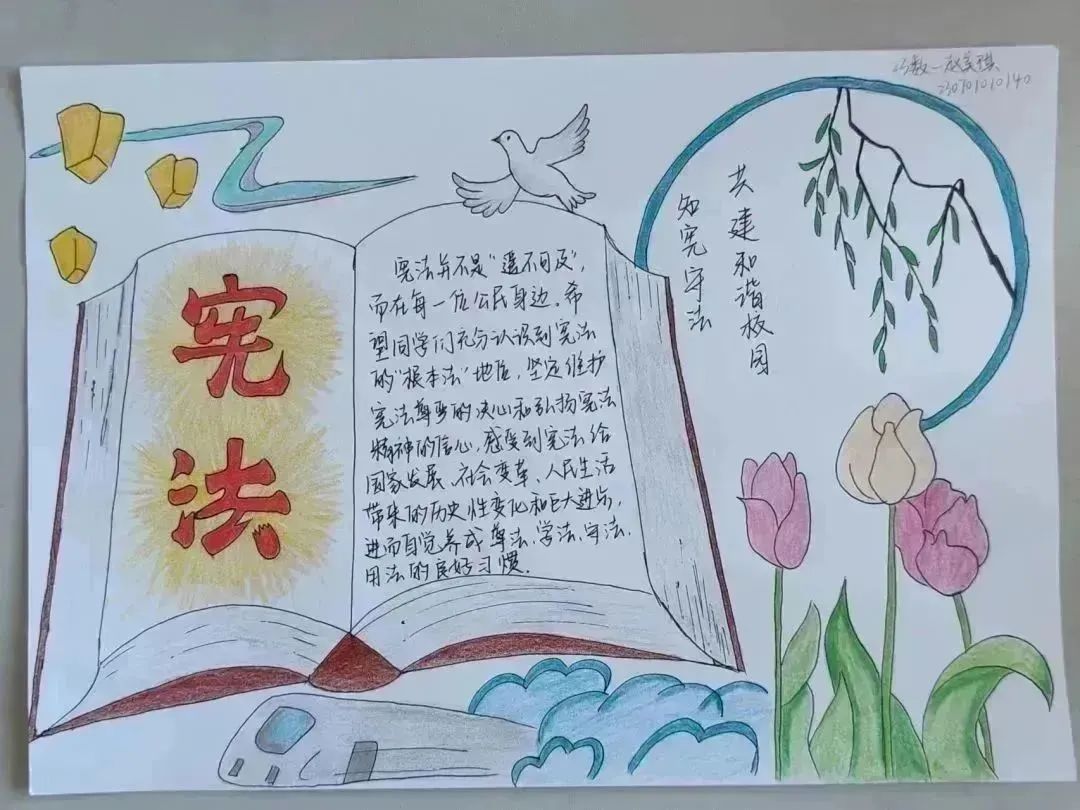 宪
法
宪法并不是“遥不可及”,
而在每一位公民身边。希
望同学们充分认识到宪法
的“根本法”地位,坚定维护
宪法尊严的决心和弘扬宪法
精神的信心,感受到宪法给
国家发展、社会变革、人民生活
带来的历史性变化和巨大进步,
进而自觉养成尊法、学法、守法、
用法的良好习惯.
共建和谐校园
知宪守法
23数一
23070101040